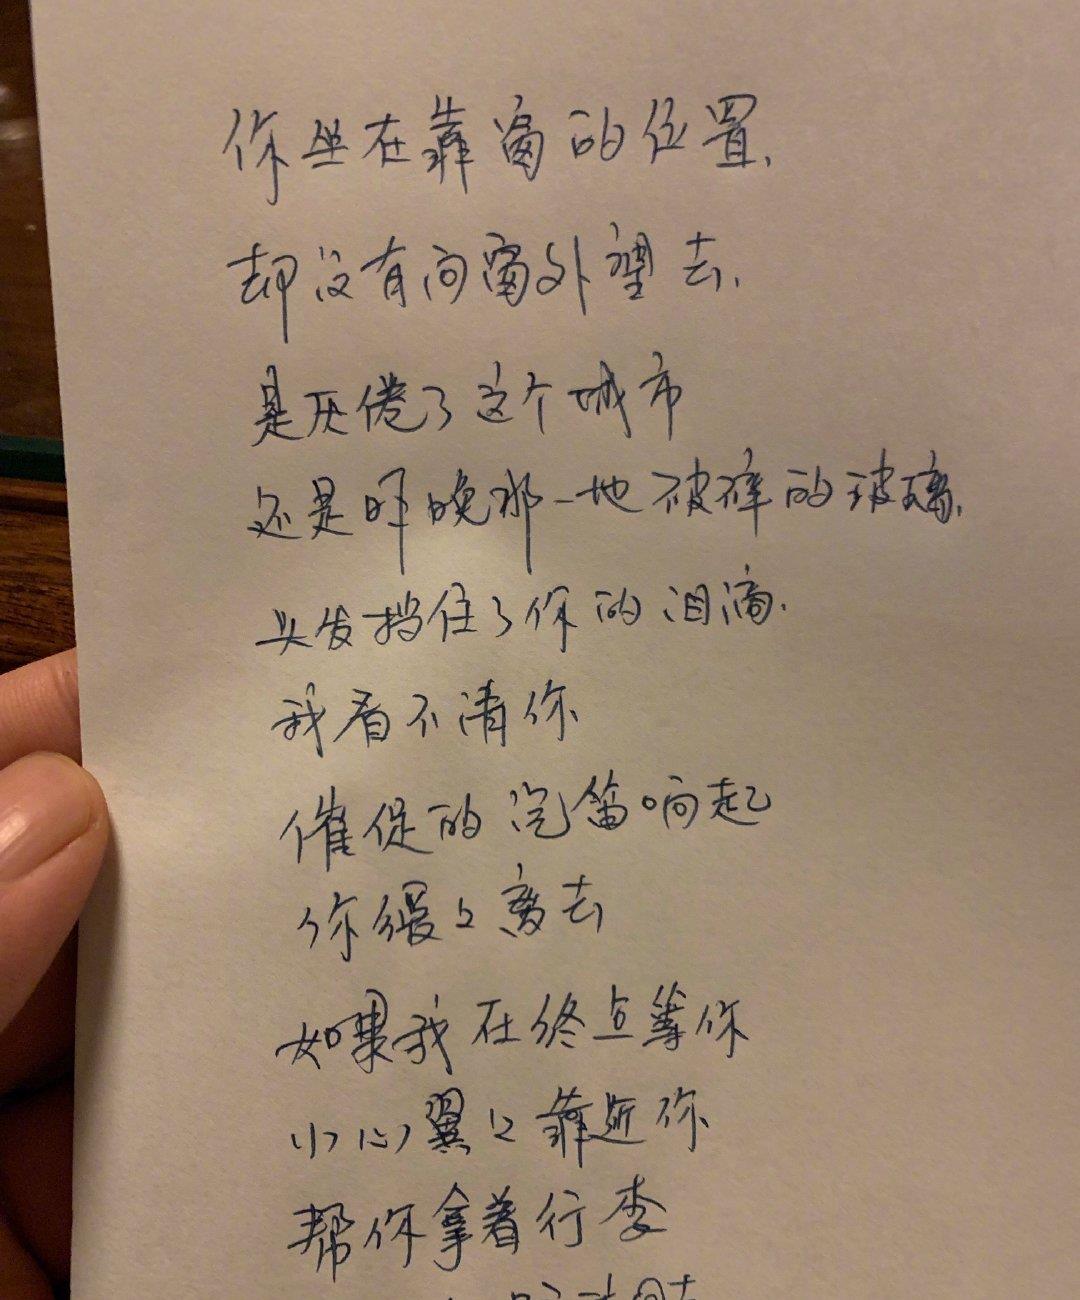 你坐在靠窗的位置,
却没有向窗外望去,
是厌倦了这个城市
还是昨晚那一地破碎的玻璃,
头发挡住了你的泪滴.
我看不清你
催促的汽笛响起
你缓々离去
如果我在终点等你
小心翼々靠近你
帮你拿着行李